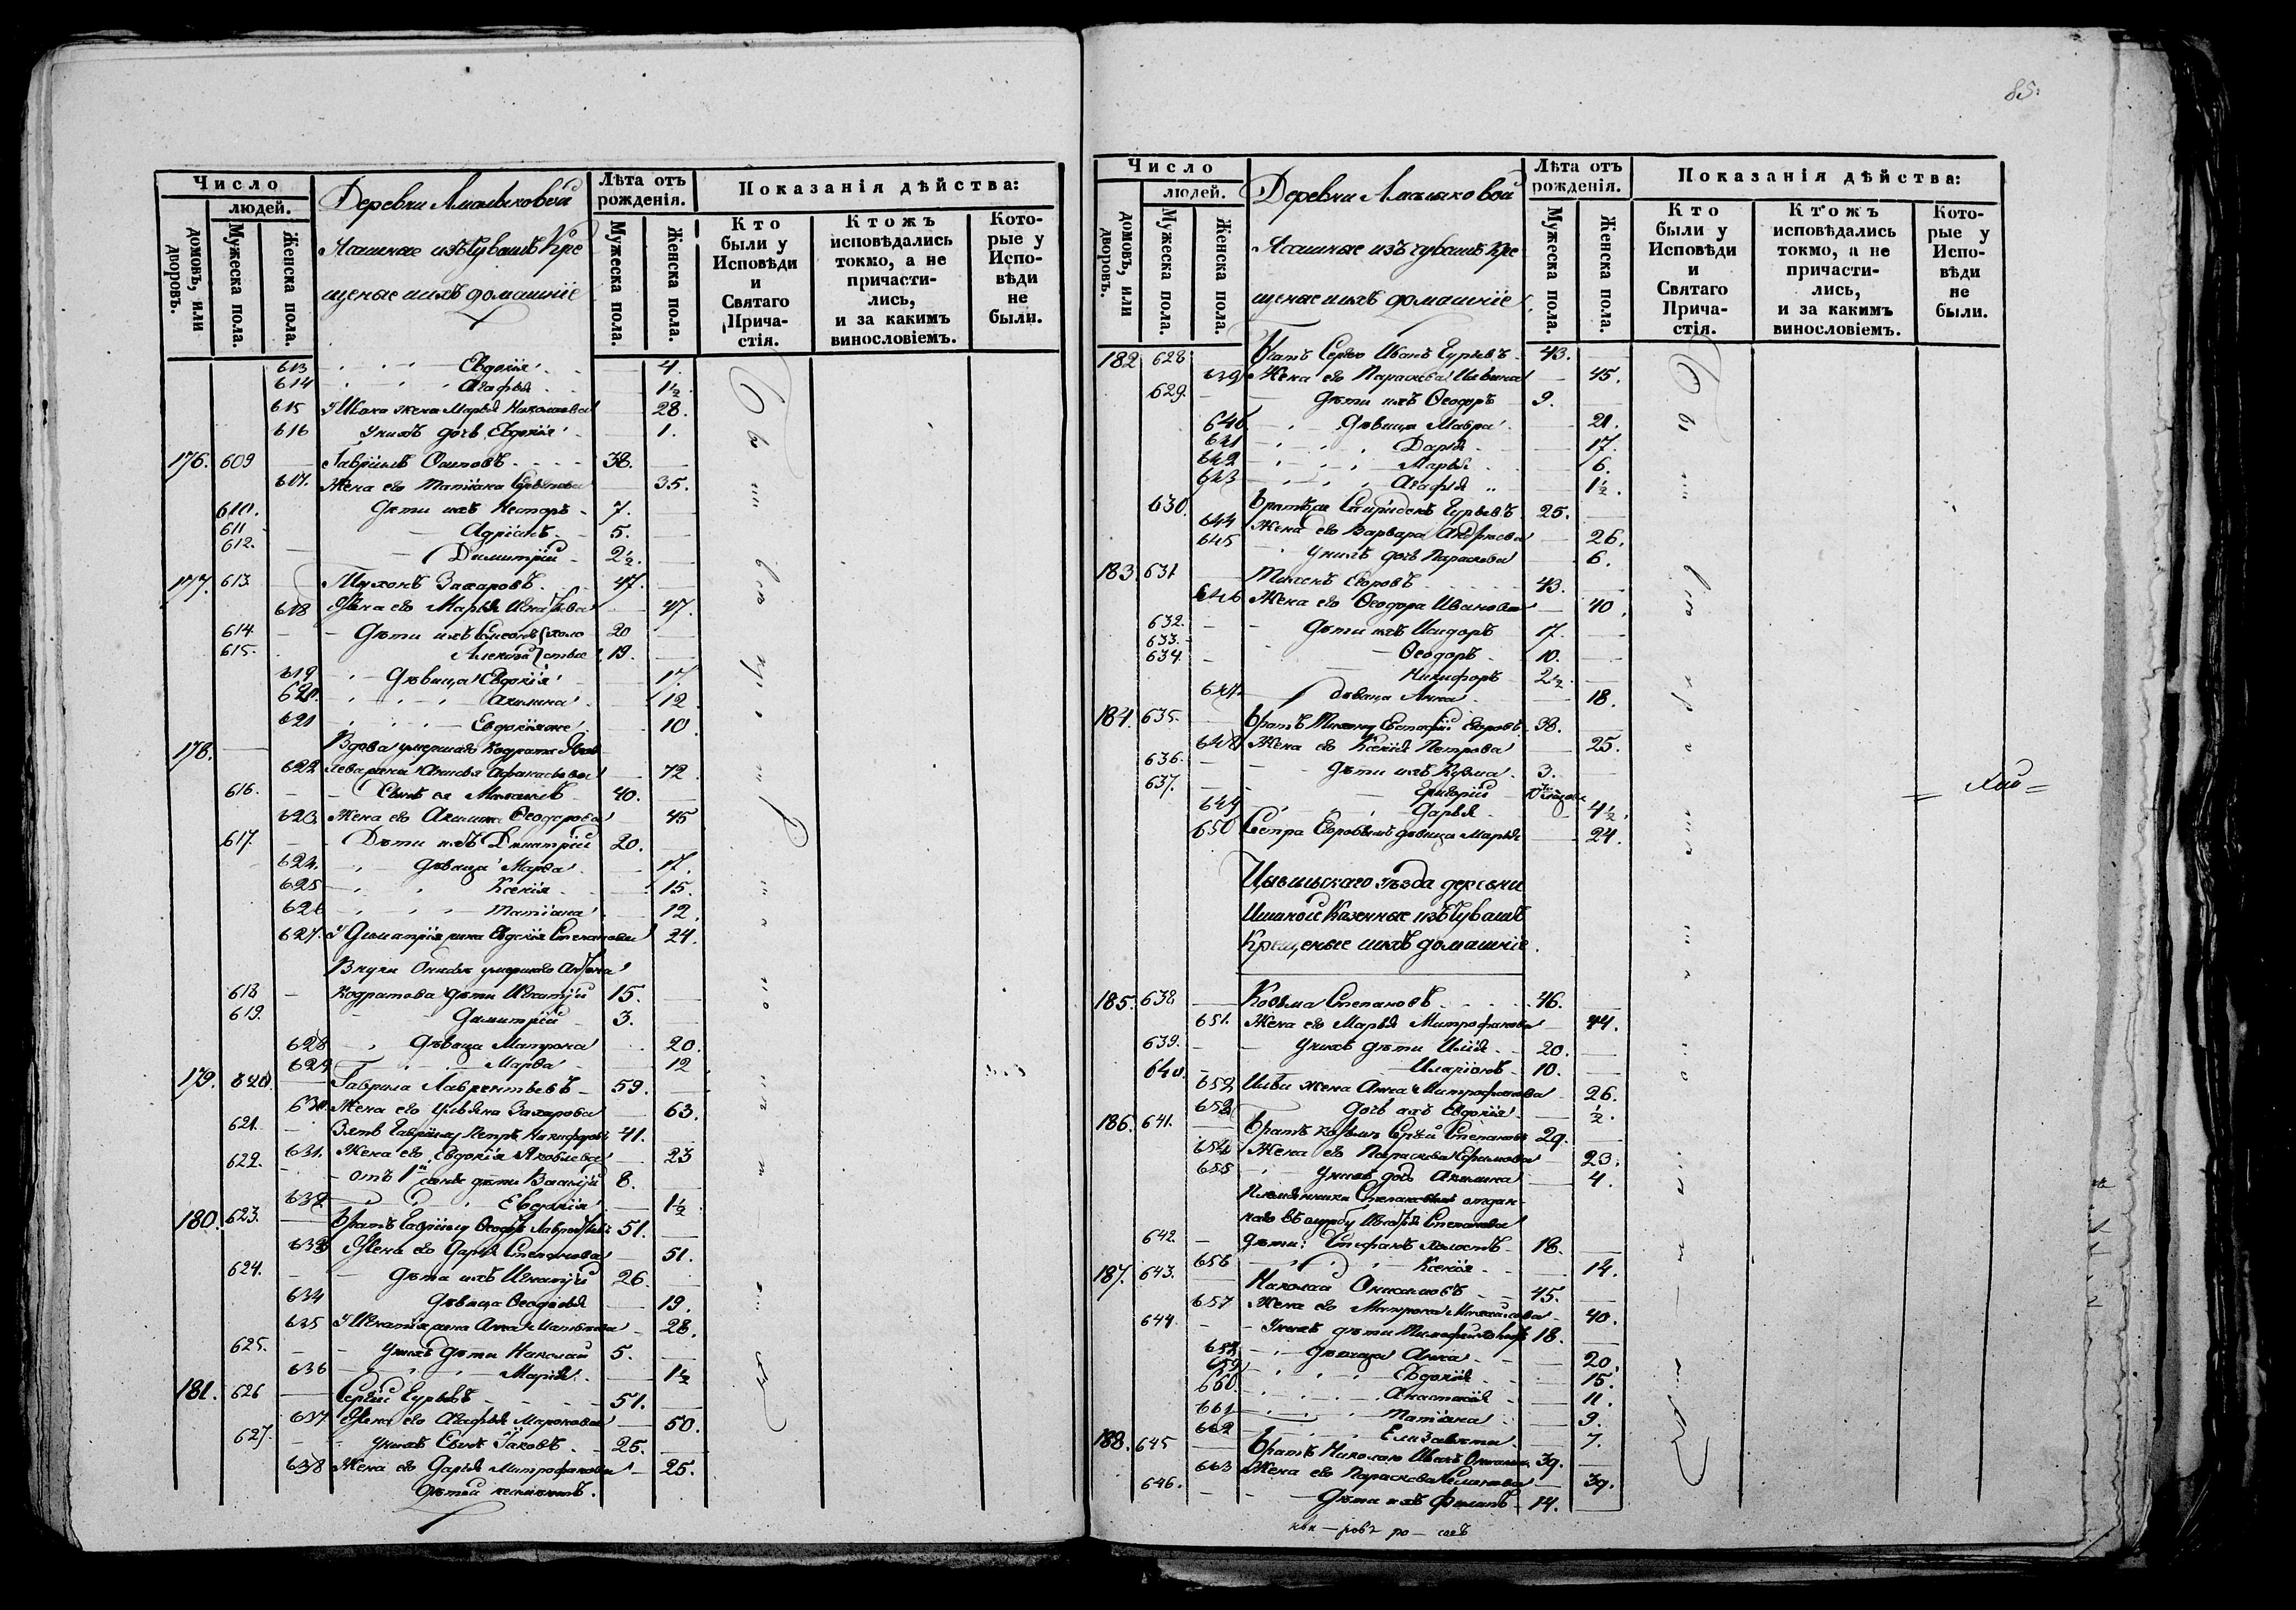 Число
людей.
домовъ, или дворовъ.
Мужеска пола.
Женска пола.
Деревни Амалыковой
Ясашные изъ Чувашъ Кре
щеные и ихъ домашніе
Лѣта отъ рожденія.
Мужеска пола.
Женска пола.
Показанія дѣйства:
Кто были у Исповѣди и Святаго Прича-стія.
Ктожъ исповѣдались токмо, а не причасти-лись, и за какимъ винословіемъ.
Кото-рые у Испо-вѣди не были.
613 Евдокія 4.
614 Агафья 1½.
615 жена Марья Николаева 28.
616 у нихъ дочь Евдокія 1.
176. 609 Гавріилъ Осиповъ 38.
617. Жена его Татіана 35.
610. Дѣти ихъ Несторъ 7.
611 Адріанъ 5.
612. Димитрій 2½.
177. 613. Тихонъ Захаровъ 47.
618 Жена его Марья Игнатьева 47.
614 Дѣти ихъ Симеонъ холо 20
615. Алексѣй стые 19.
619 Дѣвица Евдокія 17.
620. Акилина 12
621 Евдокія же 10
178. Вдова умершаго Кодрата Яков
622 лева жена Афанасьева 72
616. Сынъ ея Михаилъ 40.
623. Жена его Акилина Ѳеодорова 45
617. Дѣти ихъ Димитрій 20.
624. Дѣвица Марѳа 17.
625 Ксенія 15.
626 Татіана 12.
627. У Димитрія жена Евдокія Степанова 24.
Внуки умершаго Антона
618 Кодратова дѣти Игнатій 15.
619. Димитрій 3.
628 Дѣвица Матрона 20.
629 Марѳа 12
179. 620. Гаврила Лаврентьевъ 59.
630. Жена его Ульяна Захарова 63.
621. Зять Гавріилу Петръ Никифоровъ 41.
631. Жена его Евдокія Яковлева 23
622. отъ 1й жены дѣти Василій 8.
632 Евдокія 1½
180. 623. Братъ Гавріилу Ѳеодоръ Лаврентьевъ 51.
633 Жена его Дарья Степанова 51.
624. Дѣти ихъ Игнатій 26.
634 Дѣвица Ѳеодосья 19.
635 У Игнатія жена Анна 28.
625. У нихъ дѣти Николай 5.
636 Марія 1½
181. 626 Сергій Гурьевъ 51.
637 Жена его Агафья Миронова 50.
627. У нихъ сынъ Іаковъ 25.
638 Жена его Дарья Митрофанова 25.
Дѣтей не имѣютъ.
85.
Число
людей.
домовъ, или дворовъ.
Мужеска пола.
Женска пола.
Деревни Амалыковой
Ясашные изъ чувашъ кре
щеные и ихъ домашніе
Лѣта отъ рожденія.
Мужеска пола.
Женска пола.
Показанія дѣйства:
Кто были у Исповѣди и Святаго Прича-стія.
Ктожъ исповѣдались токмо, а не причасти-лись, и за какимъ винословіемъ.
Кото-рые у Испо-вѣди не были.
182 628 Братъ Сергію Иванъ Гурьевъ 43.
639 Жена его Параскева 45.
629. Дѣти ихъ Ѳеодоръ 9.
640 Дѣвица Мавра 21.
641 Дарья 17.
642 Марья 6.
643 Агафья 1½.
630. Братъ же Спиридонъ Гурьевъ 25.
644 Жена его Варвара Андреева 26.
645 У нихъ дочь Параскева 6.
183. 631 Тихонъ Егоровъ 43.
646 Жена его Ѳеодора Иванова 40.
632. Дѣти ихъ Исидоръ 17.
633. Ѳеодоръ 10.
634 Никифоръ 2½
647 Дѣвица Анна 18.
184. 635. Братъ Тихону Евстафій Егоровъ 38.
648 Жена его Ксенія Петрова 25.
636. Дѣти ихъ Кузма 3.
637. Григорій
649 Дарья 4½.
650 Сестра Егоровымъ дѣвица Марья 24.
= =
Цывильскаго уѣзда деревни
Казенные изъ Чувашъ
Крещеные и ихъ домашніе.
185. 638 Козьма Степановъ 46.
651. Жена его Марья Митрофанова 44.
639. У нихъ дѣти Илія 20.
640. Иларіонъ 10.
652 Ильи жена Анна Митрофанова 26.
653 Дочь ихъ Евдокія ½.
186. 641. Братъ Козьмѣ Сергій Степановъ 29.
654 Жена его Параскева Ефимова 23.
655 У нихъ дочь Акилина 4.
Племянники Степановымъ отдан-
наго въ службу Игнатія Степанова
642. Дѣти: Стефанъ холостъ 18.
656 Ксенія 14.
187. 643. Николай 45.
657 Жена его Матрона Михайлова 40.
644. У нихъ дѣти Тимофей 18.
658 Дѣвица Анна 20.
659 Евдокія 15.
660. Анастасія 11.
661 Татіана 9.
662 Елизавета 7.
188. 645 Братъ Николаю Иванъ 39.
663 Жена его Параскева 39.
646. Дѣти ихъ Филипъ 14.